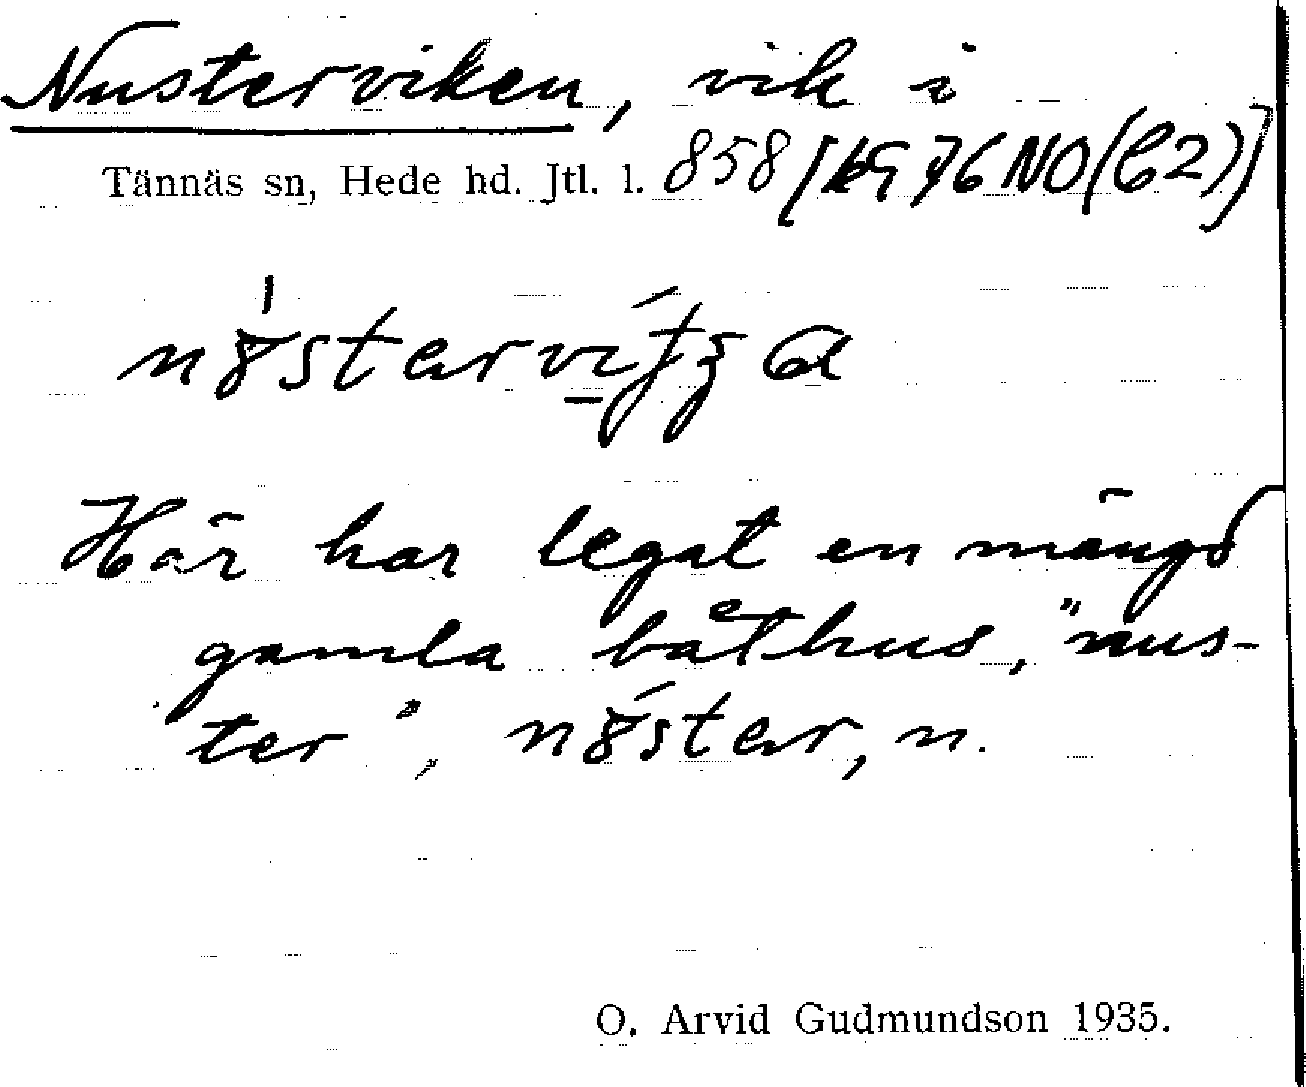 Nusterviken, vik i
Tännäs sn, Hede hd. Jtl. l. 858 [16976 NO(C2)]
Här har legat en mängd
gamla båthus, "nus-
ter", n.
O. Arvid Gudmundson 1935.